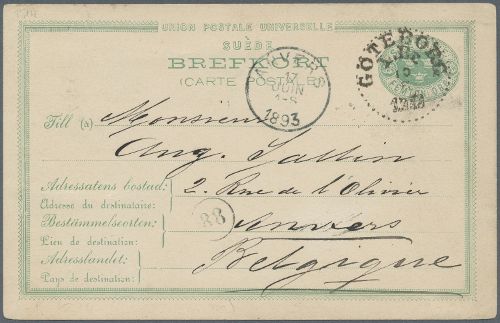 UNION POSTALE UNIVERSELLE
SUÈDE
BREFKORT
(CARTE POSTALE)
ANVERS
17
JUIN
1893
GÖTEBORG
Till (a) Monsieur
Aug.
Adressatens bostad: 2. Rue de l'Olivier
Adresse du destinataire:
Bestämmelseorten: Anvers
Lien de destination:
Adresslandet: Belgique
Pays de destination:
88